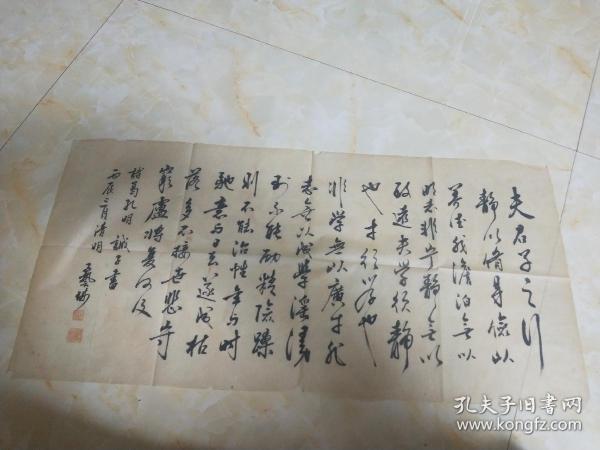 夫君子之行
静以脩身俭以
养德非澹泊无以
明志非宁静无以
致远夫学须静
也才须学也
非学无以广才非
志无以成学淫慢
则不能励精险躁
则不能治性年与时
驰意与日去遂成枯
落多不接世悲守
穷庐将复何及
诸葛孔明 诫子书
丙辰二月清明
孔夫子旧书网
www.kongfz.com